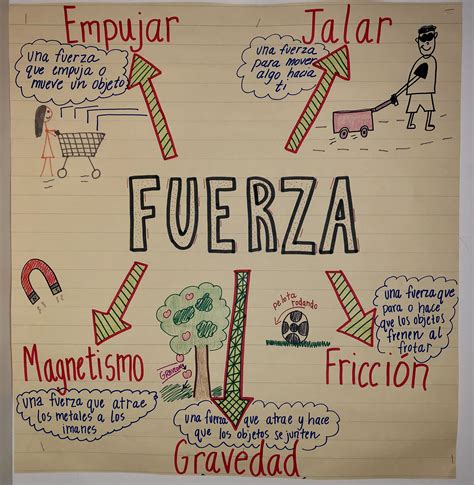 Empujar
una fuerza
que empuja o
mueve un objeto
Jalar
una fuerza
para mover
algo hacia
ti
FUERZA
pelota
rodando
una fuerza que
para o hace
que los objetos
frenen al
frotar
Magnetismo
Gravedad
Fricción
una fuerza que atrae
los metales a los
imanes
una fuerza que atrae y hace
que los objetos se junten
Gravedad